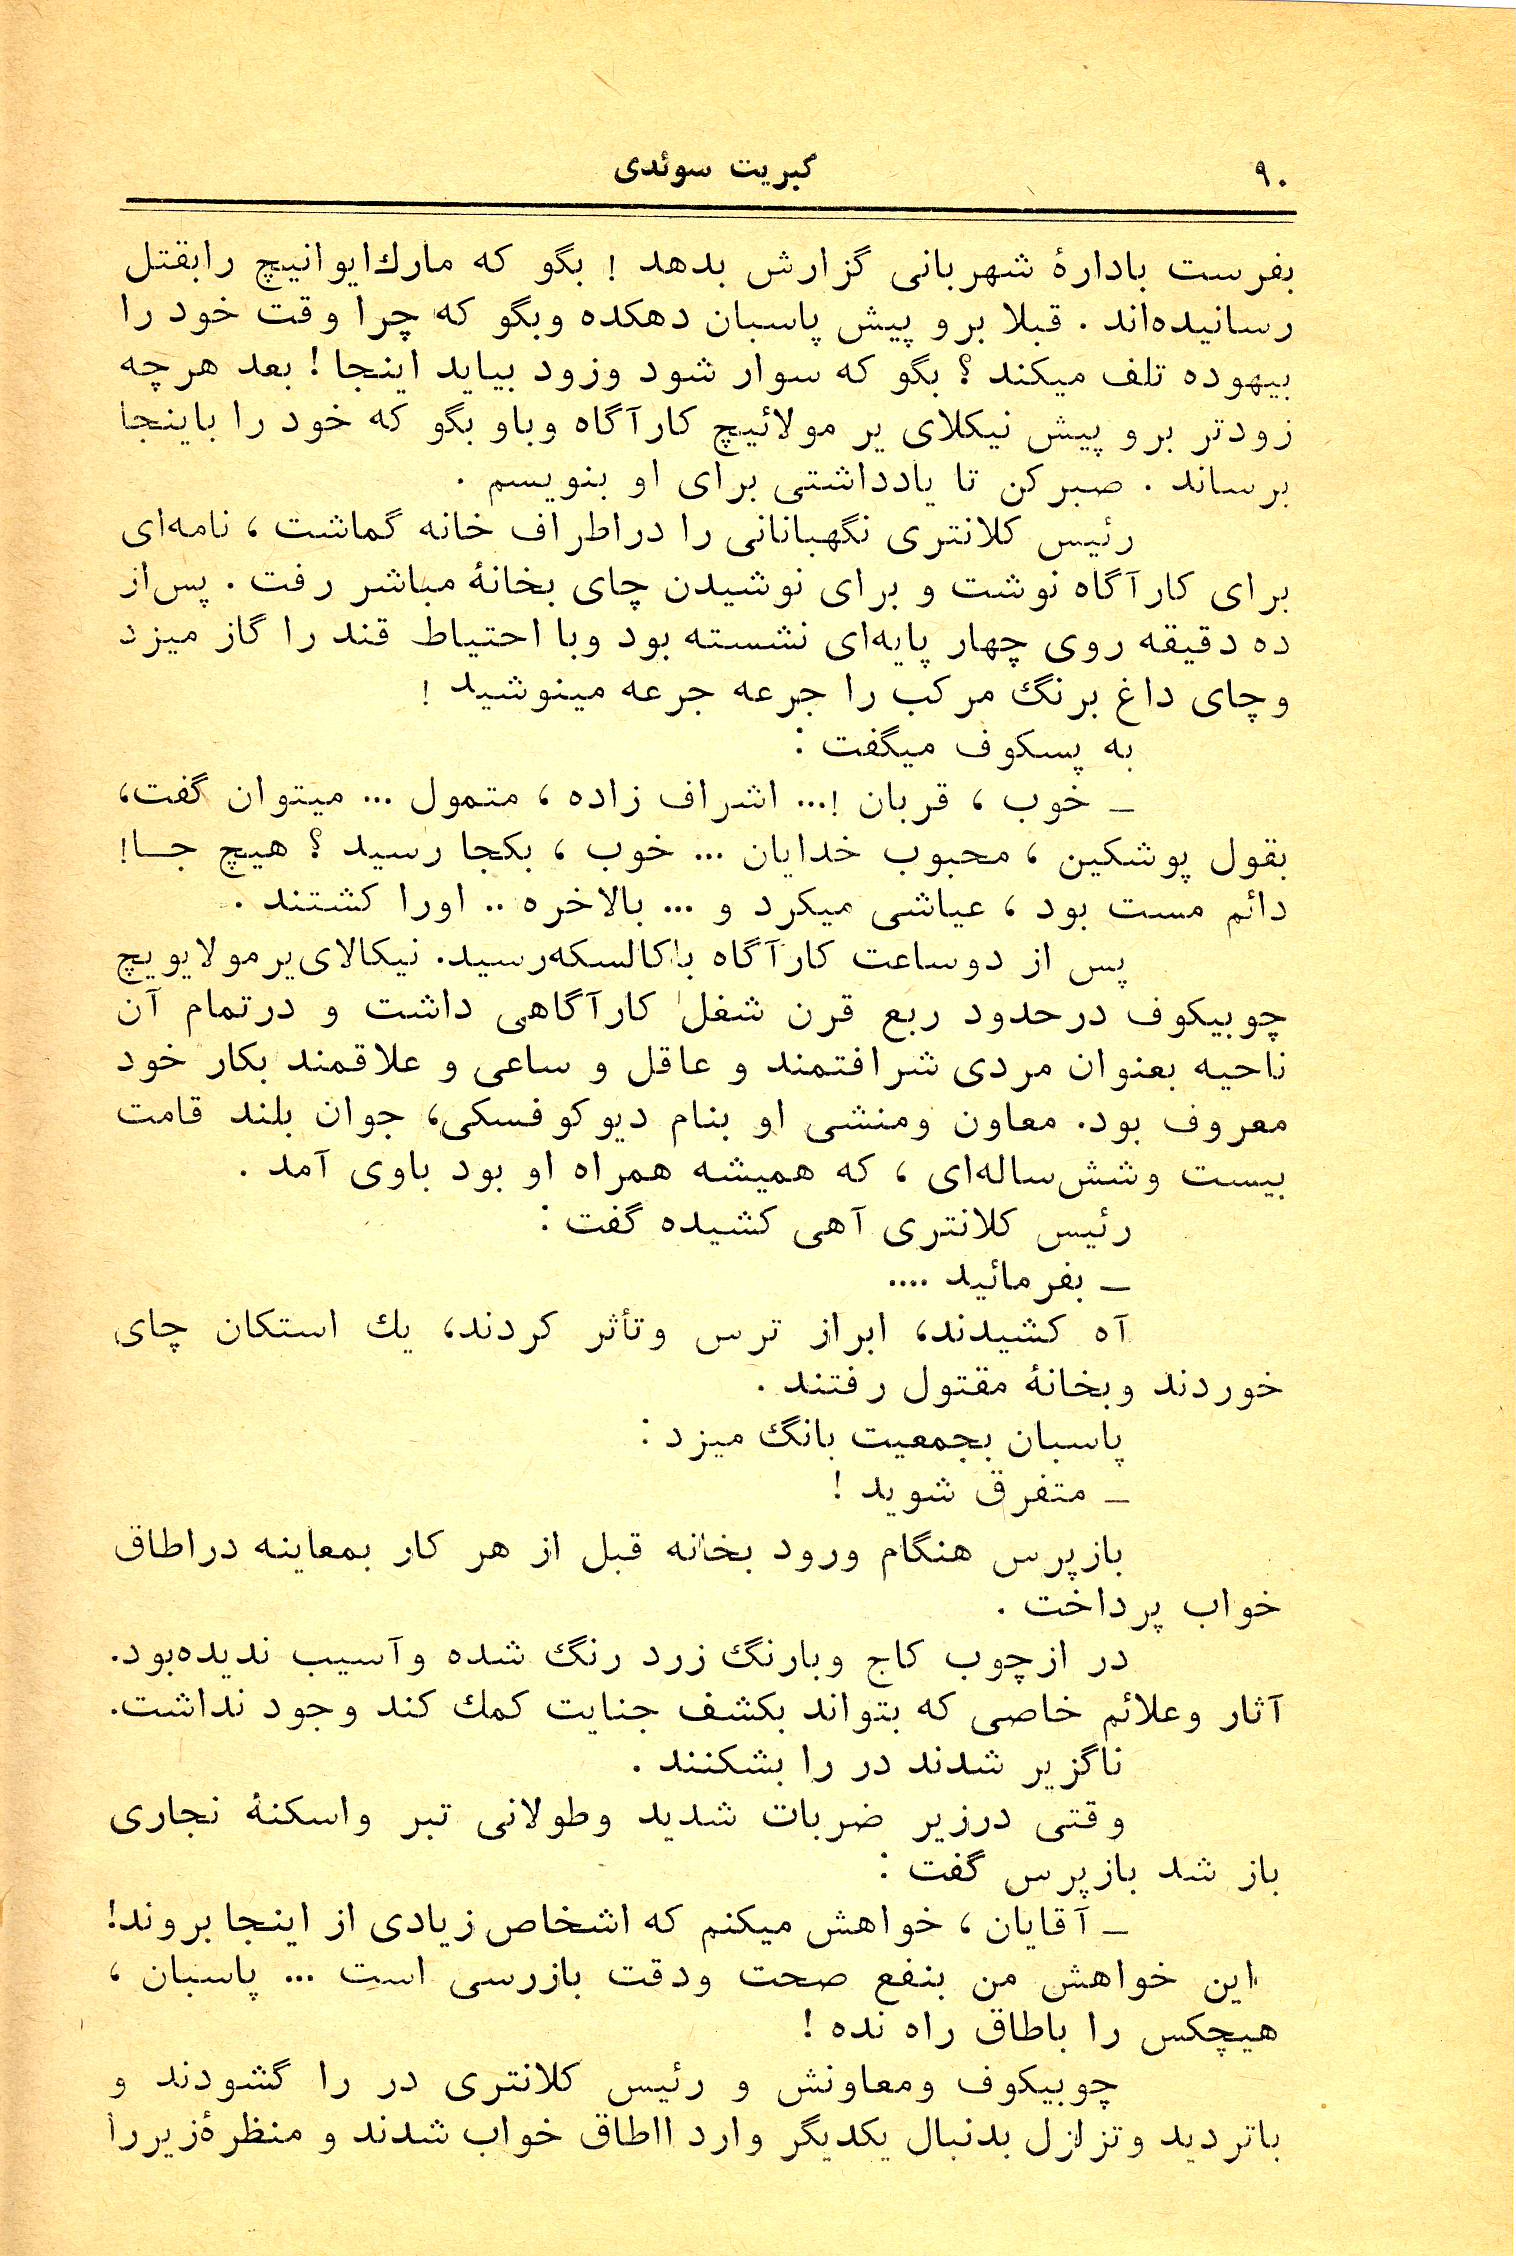 ۹۰
کبریت سوئدی
بفرست بادارهٔ شهربانی گزارش بدهد ! بگو که مارك‌ایوانیچ رابقتل
رسانیده‌اند . قبلا برو پیش پاسبان دهکده وبگو که چرا وقت خود را
بیهوده تلف میکند ؟ بگو که سوار شود وزود بیاید اینجا ! بعد هرچه
زودتر برو پیش نیکلای یر مولائیچ کارآگاه وباو بگو که خود را باینجا
برساند . صبرکن تا یادداشتی برای او بنویسم .
رئیس کلانتری نگهبانانی را دراطراف خانه گماشت ، نامه‌ای
برای کارآگاه نوشت و برای نوشیدن چای بخانهٔ مباشر رفت . پس‌از
ده دقیقه روی چهار پایه‌ای نشسته بود وبا احتیاط قند را گاز میزد
وچای داغ برنگ مرکب را جرعه جرعه مینوشید !
به پسکوف میگفت :
ـ خوب ، قربان !... اشراف زاده ، متمول ... میتوان گفت،
بقول پوشکین ، محبوب خدایان ... خوب ، بکجا رسید ؟ هیچ جــا!
دائم مست بود ، عیاشی میکرد و ... بالاخره .. اورا کشتند .
پس از دوساعت کارآگاه با کالسکه‌رسید. نیکالای‌یرمولایویچ
چوبیکوف درحدود ربع قرن شغل کارآگاهی داشت و درتمام آن
ناحیه بعنوان مردی شرافتمند و عاقل و ساعی و علاقمند بکار خود
معروف بود. معاون ومنشی او بنام دیوکوفسکی، جوان بلند قامت
بیست وشش‌ساله‌ای ، که همیشه همراه او بود باوی آمد .
رئیس کلانتری آهی کشیده گفت :
ـ بفرمائید ....
آه کشیدند، ابراز ترس وتأثر کردند، یك استکان چای
خوردند وبخانهٔ مقتول رفتند .
پاسبان بجمعیت بانگ میزد :
ـ متفرق شوید !
بازپرس هنگام ورود بخانه قبل از هر کار بمعاینه دراطاق
خواب پرداخت .
در ازچوب کاج وبارنگ زرد رنگ شده وآسیب ندیده‌بود.
آثار وعلائم خاصی که بتواند بکشف جنایت کمك کند وجود نداشت.
ناگزیر شدند در را بشکنند .
وقتی درزیر ضربات شدید وطولانی تبر واسکنهٔ نجاری
باز شد بازپرس گفت :
ـ آقایان ، خواهش میکنم که اشخاص زیادی از اینجا بروند!
این خواهش من بنفع صحت ودقت بازرسی است ... پاسبان ،
هیچکس را باطاق راه نده !
چوبیکوف ومعاونش و رئیس کلانتری در را گشودند و
باتردید وتزلزل بدنبال یکدیگر وارد ااطاق خواب شدند و منظرهٔ‌زیررا